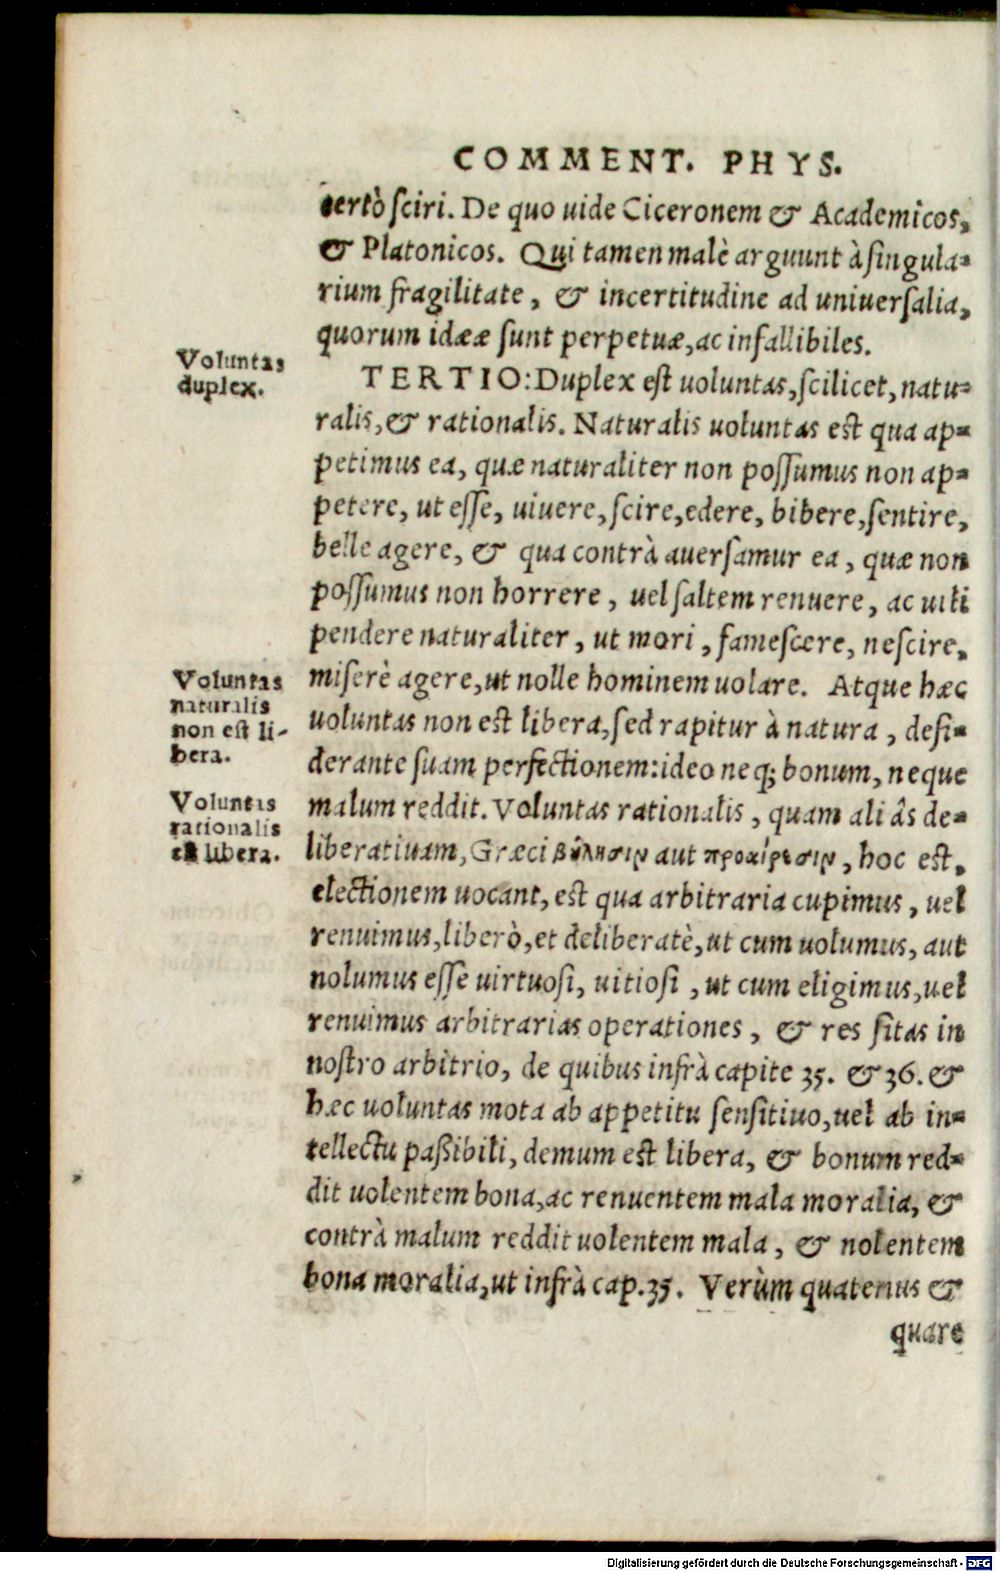 COMMENT. PHYS.
certò sciri. De quo uide Ciceronem & Academicos,
& Platonicos. Qui tamen malè arguunt à singula-
rium fragilitate, & incertitudine ad uniuersalia,
quorum idææ sunt perpetuæ, ac infallibiles.
Voluntas
duplex.
TERTIO: Duplex est uoluntas, scilicet, natu-
ralis, & rationalis. Naturalis uoluntas est qua ap-
petimus ea, quæ naturaliter non possumus non ap-
petere, ut esse, uiuere, scire, edere, bibere, sentire,
belle agere, & qua contrà auersamur ea, quæ non
possumus non horrere, uel saltem renuere, ac uili
pendere naturaliter, ut mori, famescere, nescire,
Voluntas
naturalis
non est li-
bera.
miserè agere, ut nolle hominem uolare. Atque hæc
uoluntas non est libera, sed rapitur à natura, desi-
derante suam perfectionem: ideo neq; bonum, neque
Voluntas
rationalis
est libera.
malum reddit. Voluntas rationalis, quam aliâs de-
liberatiuam, Græci βούλησιν aut προαίρεσιν, hoc est,
electionem uocant, est qua arbitraria cupimus, uel
renuimus, liberò, et deliberatè, ut cum uolumus, aut
nolumus esse uirtuosi, uitiosi, ut cum eligimus, uel
renuimus arbitrarias operationes, & res sitas in
nostro arbitrio, de quibus infrà capite 35. & 36. &
hæc uoluntas mota ab appetitu sensitiuo, uel ab in-
tellectu paßibili, demum est libera, & bonum red-
dit uolentem bona, ac renuentem mala moralia, &
contrà malum reddit uolentem mala, & nolentem
bona moralia, ut infrà cap. 35. Verùm quatenus &
quare
Digitalisierung gefördert durch die Deutsche Forschungsgemeinschaft - DFG